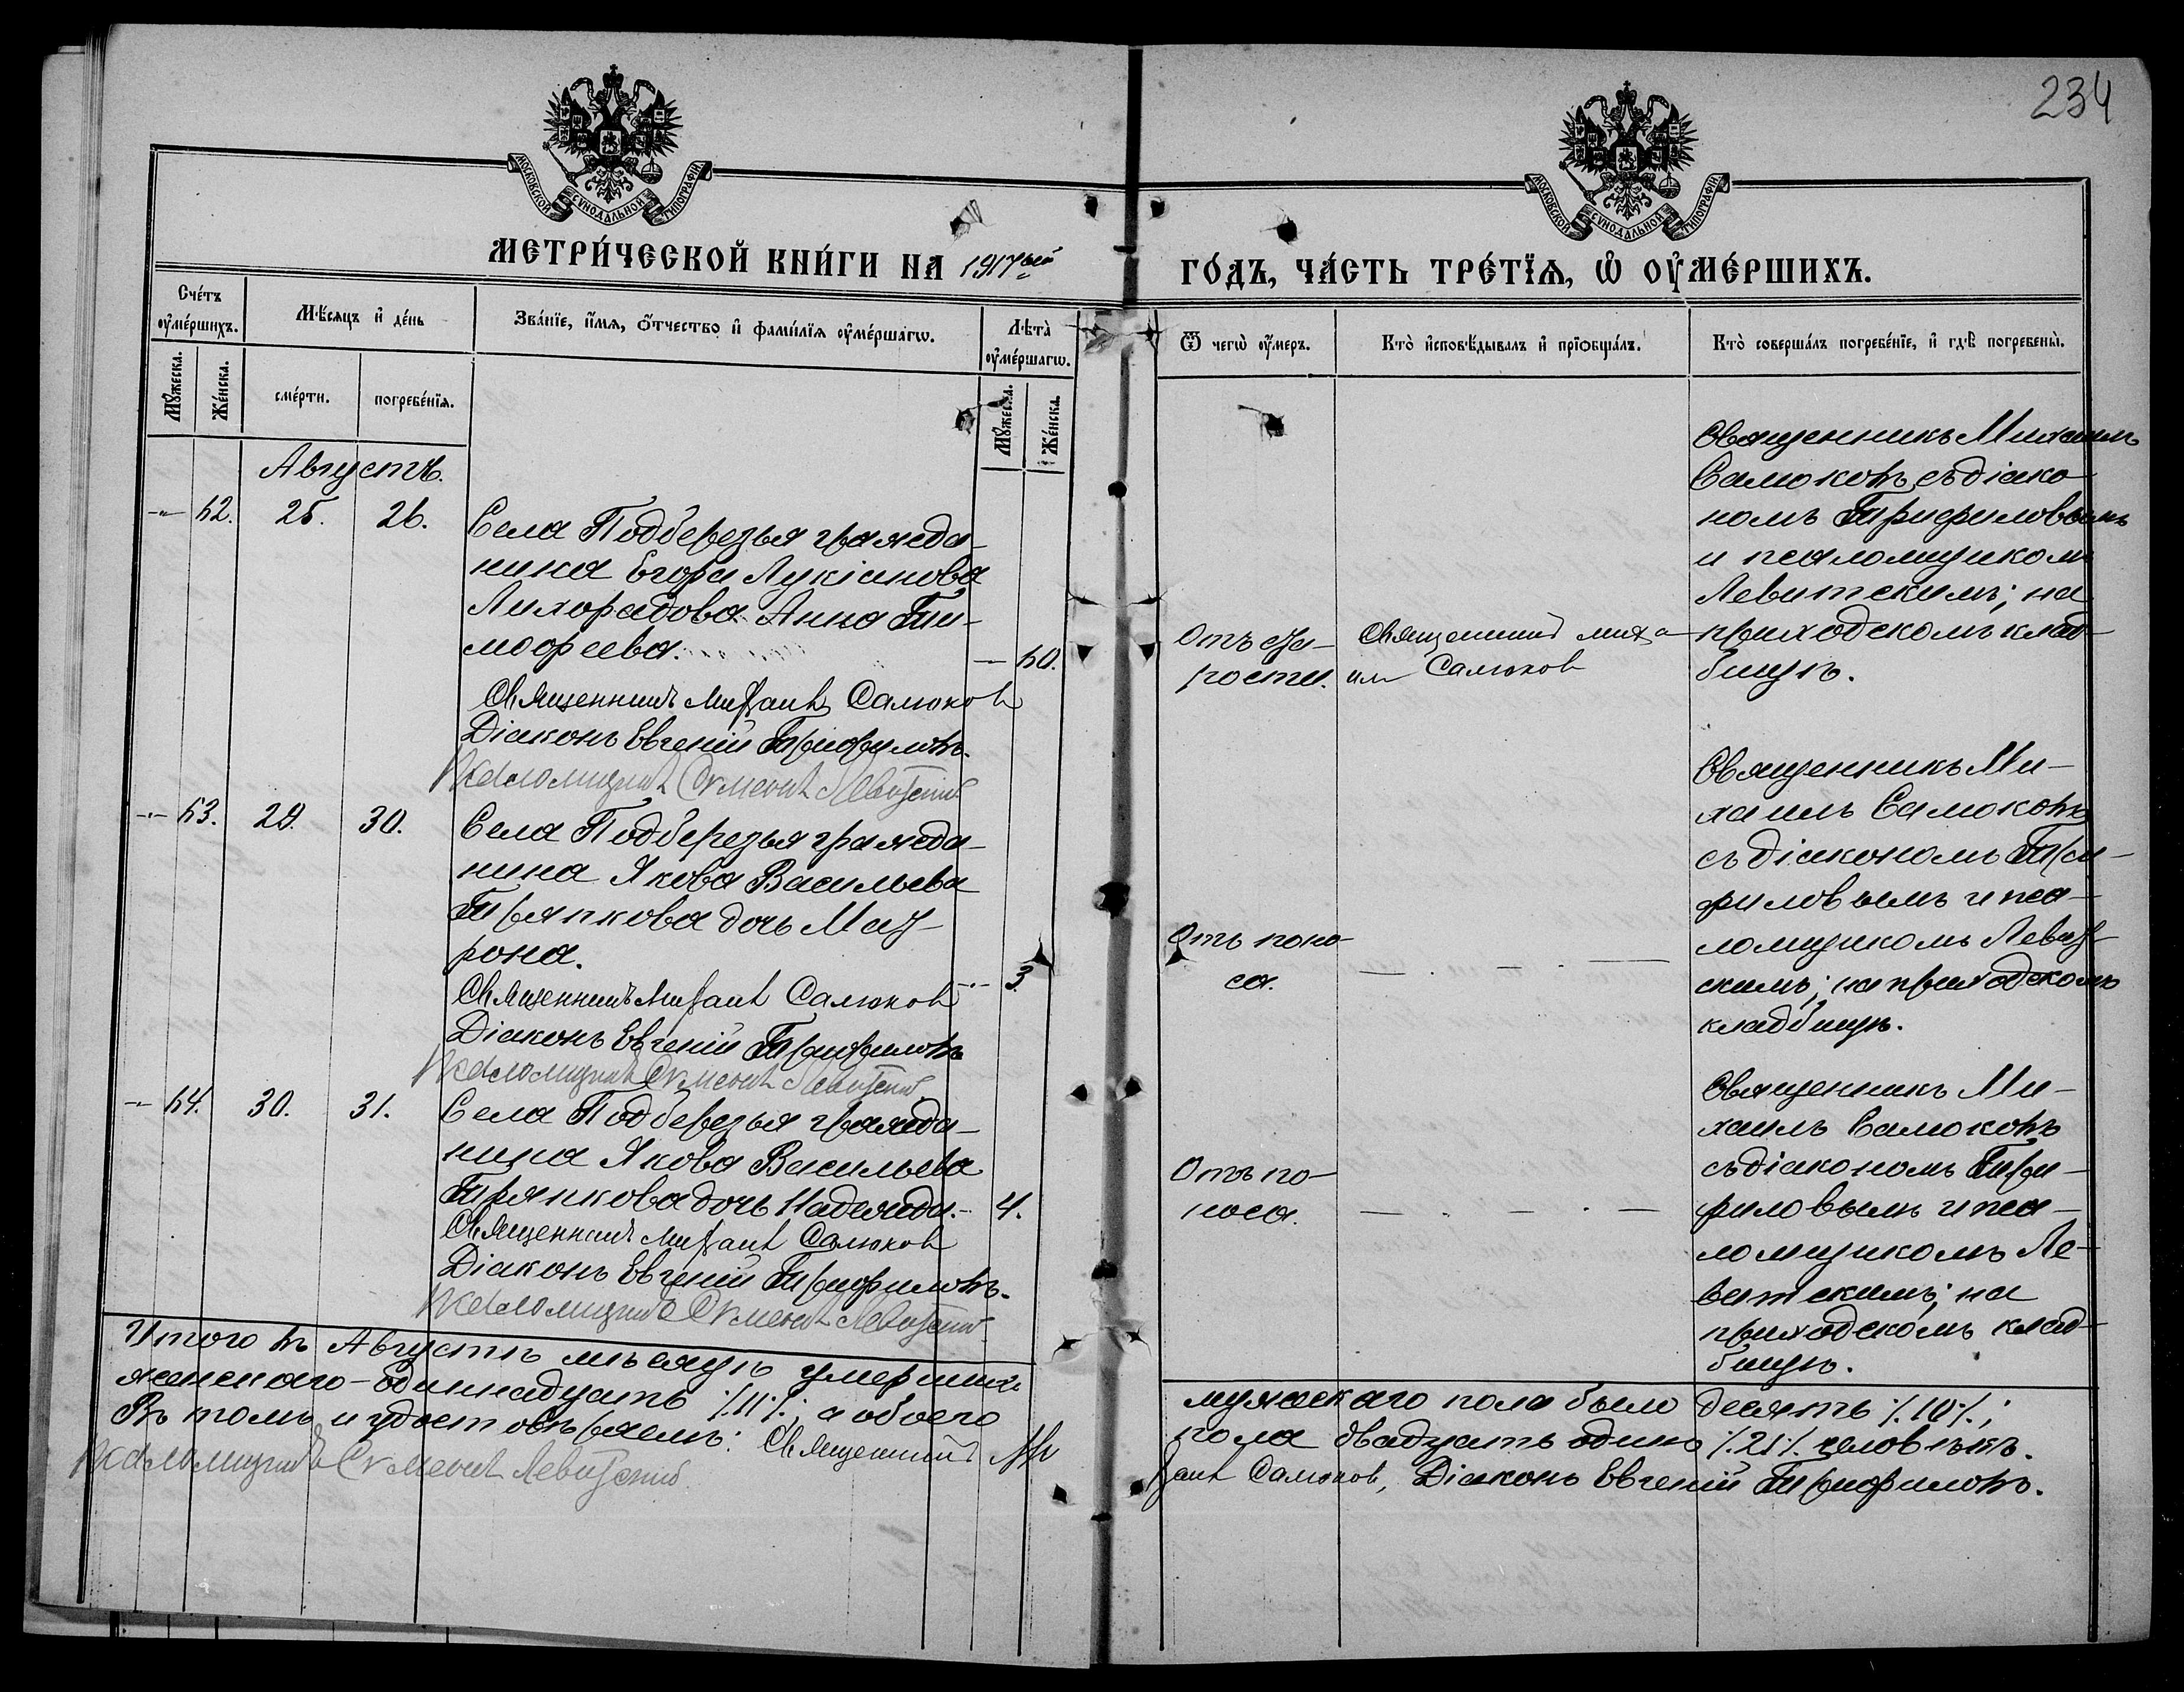 234
МОСКОВСКОЙ СѴНОДАЛЬНОЙ ТИПОГРАФІИ.
МОСКОВСКОЙ СѴНОДАЛЬНОЙ ТИПОГРАФІИ.
МЕТРИ́ЧЕСКОЙ КНИ́ГИ НА 1917ый
ГО́ДЪ, ЧА́СТЬ ТРЕ́ТЇѦ, Ѡ҆ ОУ҆МЕ́РШИХЪ.
Сче́тъ оу҆ме́ршихъ.
Мѣ́сяцъ и҆ де́нь
Зва́нїе, и҆́мѧ, ѻ҆́тчество и҆ фами́лїѧ оу҆ме́ршагѡ.
Лѣ́та оу҆ме́ршагѡ.
Ѿ чегѡ̀ оу҆́меръ.
Кто̀ и҆сповѣ́дывалъ и҆ прїѡбща́лъ.
Кто̀ соверша́лъ погребе́нїе, и҆ гдѣ̀ погребены̀.
Мꙋ́жеска.
Же́нска.
сме́рти.
погребе́нїѧ.
Мꙋ́жеска.
Же́нска.
Августъ.
-"- 62. 25. 26.
Села Подберезья гражда-
нина Егора Лукіанова
Лихорадова Анна Ти-
мофеева. — 60.
Священникъ Михаилъ Самоков
Діаконъ Евгеній Трифиловъ.
Псаломщикъ Симеонъ Левитскій
Отъ ста-
рости.
Священникъ Миха-
ил Самоков
Священникъ Михаилъ
Самоковъ съ діако-
номъ Трифиловымъ
и псаломщикомъ
Левитскимъ; на
приходскомъ клад-
бищѣ.
-"- 63. 29. 30.
Села Подберезья гражда-
нина Якова Васильева
Тряпкова дочь Мат-
рона. -"- 3.
Священникъ Михаилъ Самоков
Діаконъ Евгеній Трифиловъ
Псаломщикъ Симеонъ Левитскій
Отъ поно-
са.
Священникъ Ми-
хаилъ Самоковъ
съ діакономъ Три-
филовымъ и пса-
ломщикомъ Левит-
скимъ; на приходскомъ
кладбищѣ.
-"- 64. 30. 31.
Села Подберезья гражда-
нина Якова Васильева
Тряпкова дочь Надежда. - 4.
Священникъ Михаилъ Самоков
Діаконъ Евгеній Трифиловъ.
Псаломщикъ Симеонъ Левитскій
Отъ по-
носа.
Священникъ Ми-
хаилъ Самоковъ
съ діакономъ Три-
филовымъ и пса-
ломщикомъ Ле-
витскимъ; на
приходскомъ клад-
бищѣ.
Итого въ Августѣ мѣсяцѣ умершихъ мужескаго пола было десять ٪10٪;
женскаго - одиннадцать ٪11٪; а обоего пола двадцать одинъ ٪21٪ человѣкъ.
Въ томъ и удостовѣряемъ: Священникъ Михаилъ Самоков, Діаконъ Евгеній Трифиловъ.
Псаломщикъ Симеонъ Левитскій